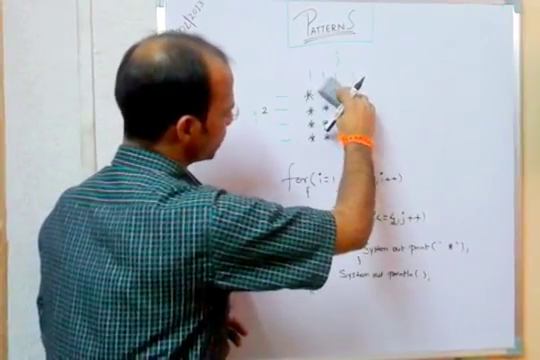 /2/2013
PATTERNS
*
2 * *
* *
* *
for(i=1 ,i++)
{
<=4,j++)
System out print(" *");
}
System out println( );